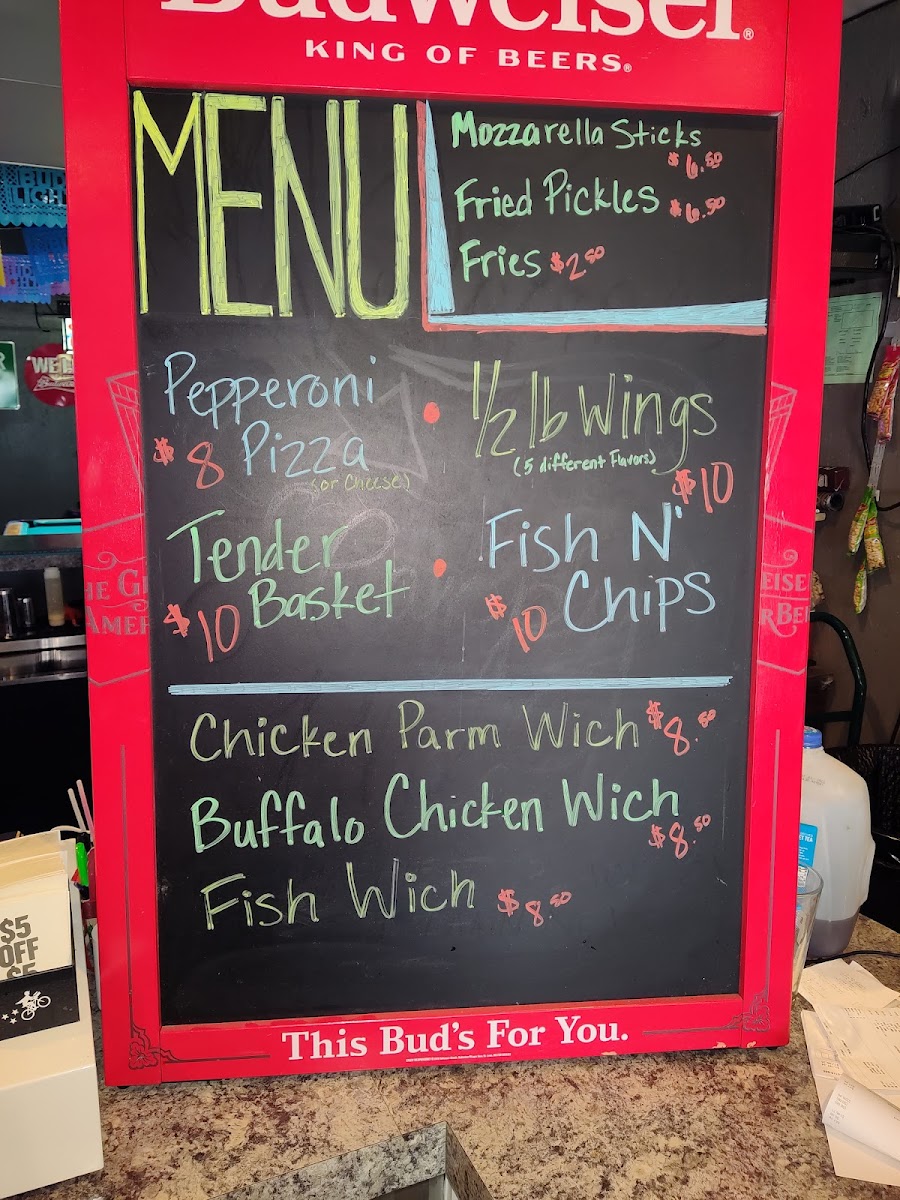 Budweiser®
KING OF BEERS®
MENU
Mozzarella Sticks
$6.50
Fried Pickles $6.50
Fries $2.50
Pepperoni
$8 Pizza
(or Cheese)
1/2 lb Wings
(5 different Flavors)
$10
Tender
$10 Basket
Fish N'
$10 Chips
Chicken Parm Wich $8.50
Buffalo Chicken Wich
$8.50
Fish Wich $8.50
This Bud's For You.
BUD
LIGHT
WE
$5
OFF